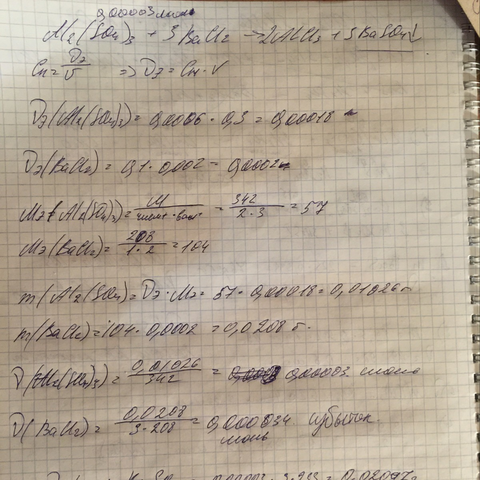 0,00003 моль
Al₂(SO₄)₃ + 3BaCl₂ → 2AlCl₃ + 3BaSO₄↓
Cн = νэ/V => νэ = Cн · V
νэ(Al₂(SO₄)₃) = 0,0006 · 0,3 = 0,00018
νэ(BaCl₂) = 0,1 · 0,002 = 0,0002
Mэ(Al₂(SO₄)₃) = M/ = 342/2·3 = 57
Mэ(BaCl₂) = 208/1·2 = 104
m(Al₂(SO₄)₃ = νэ · Mэ = 57 · 0,00018 = 0,01026 г
m(BaCl₂) = 104 · 0,0002 = 0,0208 г.
ν(Al₂(SO₄)₃) = 0,01026/342 = 0,00003 моль
ν(BaCl₂) = 0,0208/3·208 = 0,000034 избыток
моль